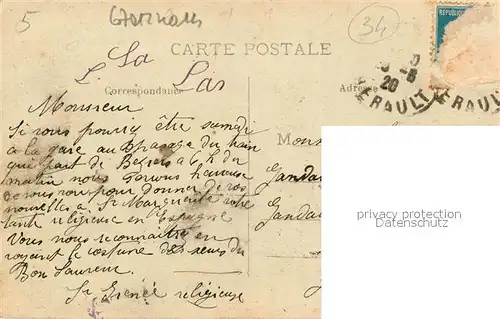 5
34
REPUBLIQUE
La
CARTE POSTALE
L. Las
20
ERAULT
ERAULT
Correspondance
Adresse
Monsieur
Si vous pouviez être samedi
à la gare au passage du train
qui part de Beziers a 6 h du
matin nous serons heureuse
de vous voir pour donner de vos
nouvelles a Sr Marguerite votre
tante religieuse en Espagne
Vous nous reconnaitrez en
voyant le costume des sœurs du
Bon Sauveur.
Sr Irenée religieuse
Mons
Gendar
Gendar
privacy protection
Datenschutz